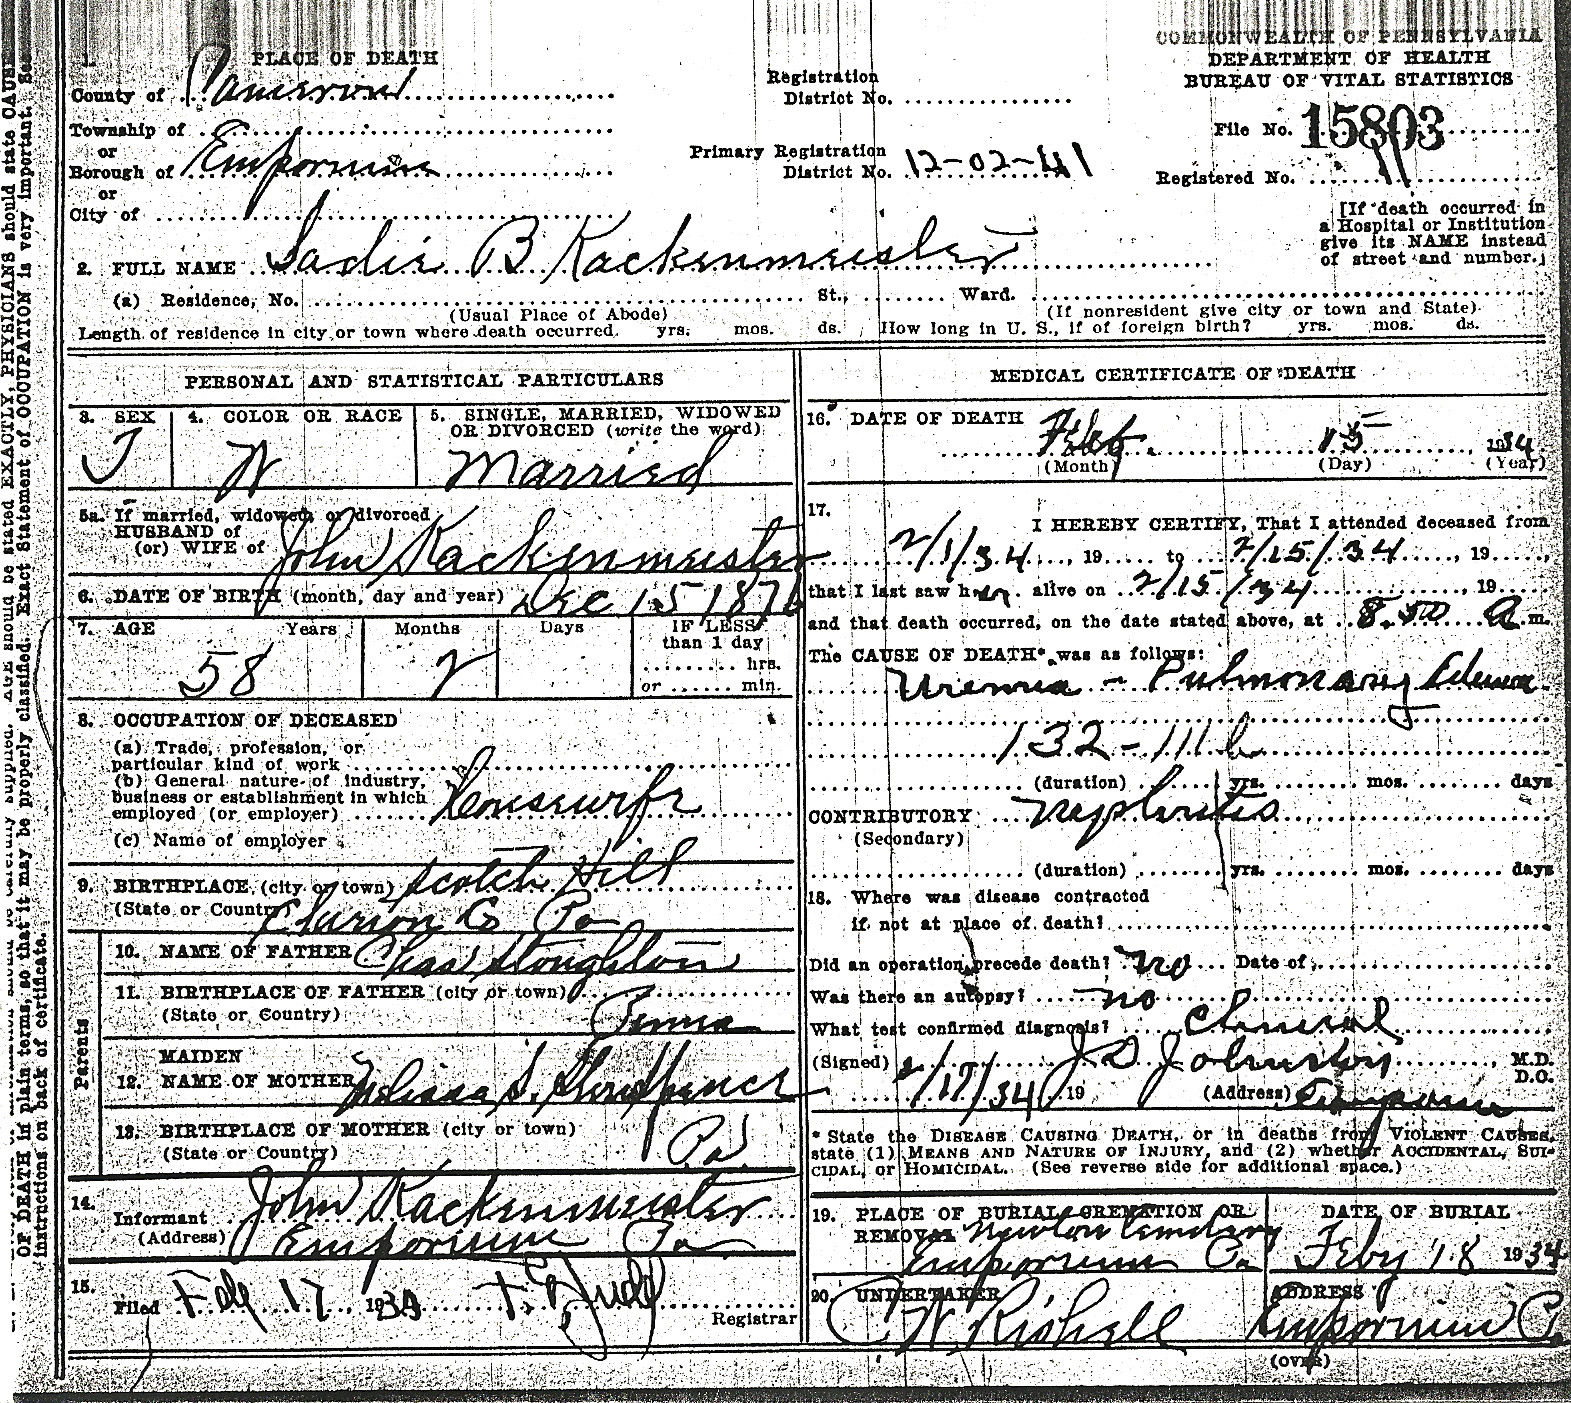 COMMONWEALTH OF PENNSYLVANIA
DEPARTMENT OF HEALTH
BUREAU OF VITAL STATISTICS
1. PLACE OF DEATH
County of Cameron
Township of
or
Borough of Emporium
or
City of
Registration
District No.
Primary Registration
District No. 12-02-41
File No. 15803
Registered No. 11
[If death occurred in
a Hospital or Institution
give its NAME instead
of street and number.]
2. FULL NAME Sadie B Kackenmeister
(a) Residence, No. St., Ward.
(Usual Place of Abode) (If nonresident give city or town and State)
Length of residence in city or town where death occurred. yrs. mos. ds. How long in U. S., if of foreign birth? yrs. mos. ds.
PERSONAL AND STATISTICAL PARTICULARS
3. SEX 4. COLOR OR RACE 5. SINGLE, MARRIED, WIDOWED
OR DIVORCED (write the word)
F W Married
5a. If married, widowed, or divorced
HUSBAND of
(or) WIFE of John Kackenmeister
6. DATE OF BIRTH (month, day and year) Dec 15 187
7. AGE Years Months Days IF LESS
than 1 day
hrs.
or min.
58 2
8. OCCUPATION OF DECEASED
(a) Trade, profession, or
particular kind of work
(b) General nature of industry,
business or establishment in which
employed (or employer) Housewife
(c) Name of employer
9. BIRTHPLACE (city or town) Scotch Hill
(State or Country) Clarion Co Pa
Parents
10. NAME OF FATHER Chas Stoughton
11. BIRTHPLACE OF FATHER (city or town)
(State or Country) Penna
MAIDEN
12. NAME OF MOTHER Melissa S.
13. BIRTHPLACE OF MOTHER (city or town)
(State or Country) Pa
14. Informant John Kackenmeister
(Address) Emporium Pa
15. Filed Feb 17 1934 Judd
Registrar
MEDICAL CERTIFICATE OF DEATH
16. DATE OF DEATH Feb. 15 1934
(Month) (Day) (Year)
17. I HEREBY CERTIFY, That I attended deceased from
2/1/34, 19 to 2/15/34, 19
that I last saw her alive on 2/15/34, 19
and that death occurred, on the date stated above, at 8.50 a m.
The CAUSE OF DEATH* was as follows:
Uremia - Pulmonary Edema
132-111b
(duration) yrs. mos. days
CONTRIBUTORY Nephritis
(Secondary)
(duration) yrs. mos. days
18. Where was disease contracted
if not at place of death?
Did an operation precede death? no Date of
Was there an autopsy? no
What test confirmed diagnosis? Clinical
(Signed) J D Johnston M.D.
D.O.
2/17/34, 19 (Address) Emporium
* State the DISEASE CAUSING DEATH, or in deaths from VIOLENT CAUSES,
state (1) MEANS AND NATURE OF INJURY, and (2) whether ACCIDENTAL, SUI-
CIDAL, or HOMICIDAL. (See reverse side for additional space.)
19. PLACE OF BURIAL CREMATION OR
REMOVAL Newton Cemetery
Emporium Pa
DATE OF BURIAL
Feby 18 1934
20. UNDERTAKER
C W Rishell
ADDRESS
Emporium Pa
(over)
AGE should be stated EXACTLY, PHYSICIANS should state CAUSE
OF DEATH in plain terms, so that it may be properly classified. Exact Statement of OCCUPATION is very important. See
instructions on back of certificate.